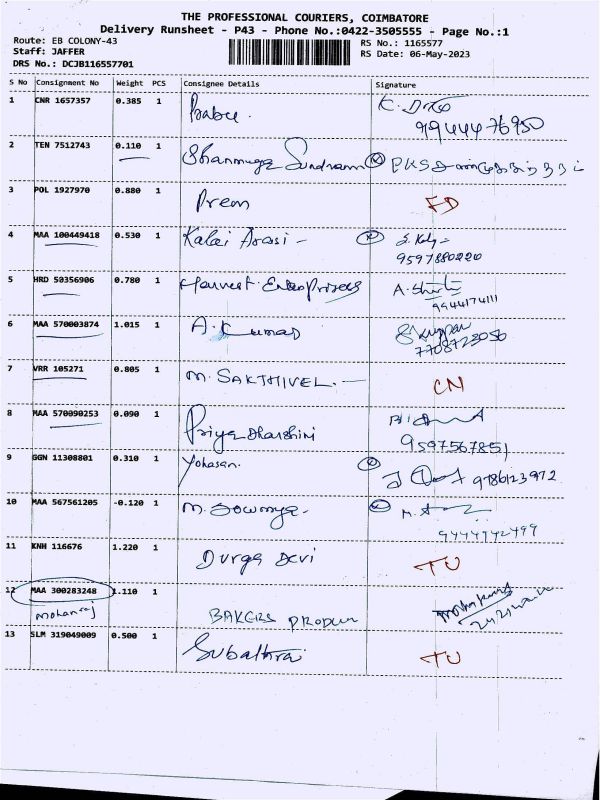 THE PROFESSIONAL COURIERS, COIMBATORE
Delivery Runsheet - P43 - Phone No.:0422-3505555 - Page No.:1
Route: EB COLONY-43
RS No.: 1165577
Staff: JAFFER
RS Date: 06-May-2023
DRS No.: DCJB116557701
S No Consignment No Weight PCS Consignee Details Signature
1 CNR 1657357 0.385 1 Babu.
9944476950
2 TEN 7512743 0.110 1 Shanmuga Sundram
3 POL 1927970 0.880 1 Prem FD
4 MAA 100449418 0.530 1 Kalai Arasi -
9597880220
5 HRD 50356906 0.780 1 Harvest Enterprises
9944174111
6 MAA 570003874 1.015 1 A. Kumar
7708723056
7 VRR 105271 0.805 1 M. SAKTHIVEL. CN
8 MAA 570090253 0.090 1 Priya Dharshini
9597567851
9 GGN 11308801 0.310 1 Yohasan.
9786123972
10 MAA 567561205 -0.120 1 M. Sowmya.
9444742499
11 KNH 116676 1.220 1 Durga Devi TU
12 MAA 300283248 1.110 1
mohanraj BAKERS
13 SLM 319049009 0.500 1 Subathrai TU